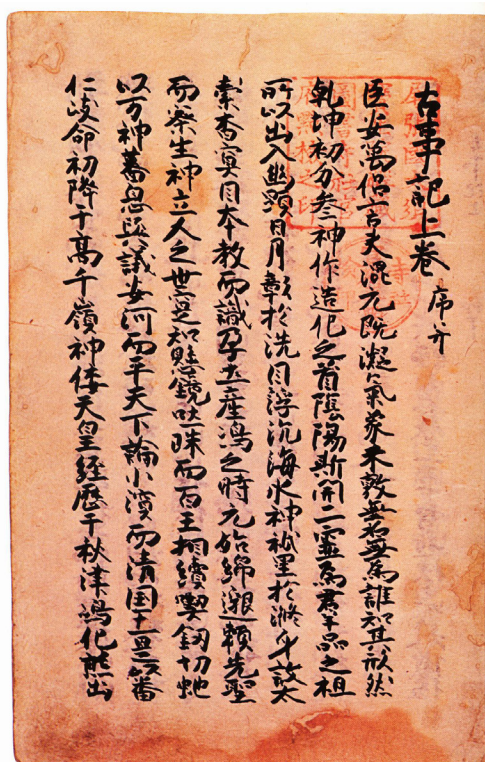 古事記上卷 序并
臣安萬侶言夫混元既凝氣象未敦無名無為誰知其形然
乾坤初分參神作造化之首陰陽斯開二靈為群品之祖
所以出入幽顯日月彰於洗目浮沉海水神祇呈於滌身故太
素杳冥因本教而識孕土產嶋之時元始綿邈賴先聖
而察生神立人之世寔知懸鏡吐珠而百王相續喫釼切虵
以万神蕃息與議安河而平天下論小濱而清國土是以番
仁岐命初降于高千嶺神倭天皇經歷于秋津嶋化熊出
圖書寺社官
府點檢之印